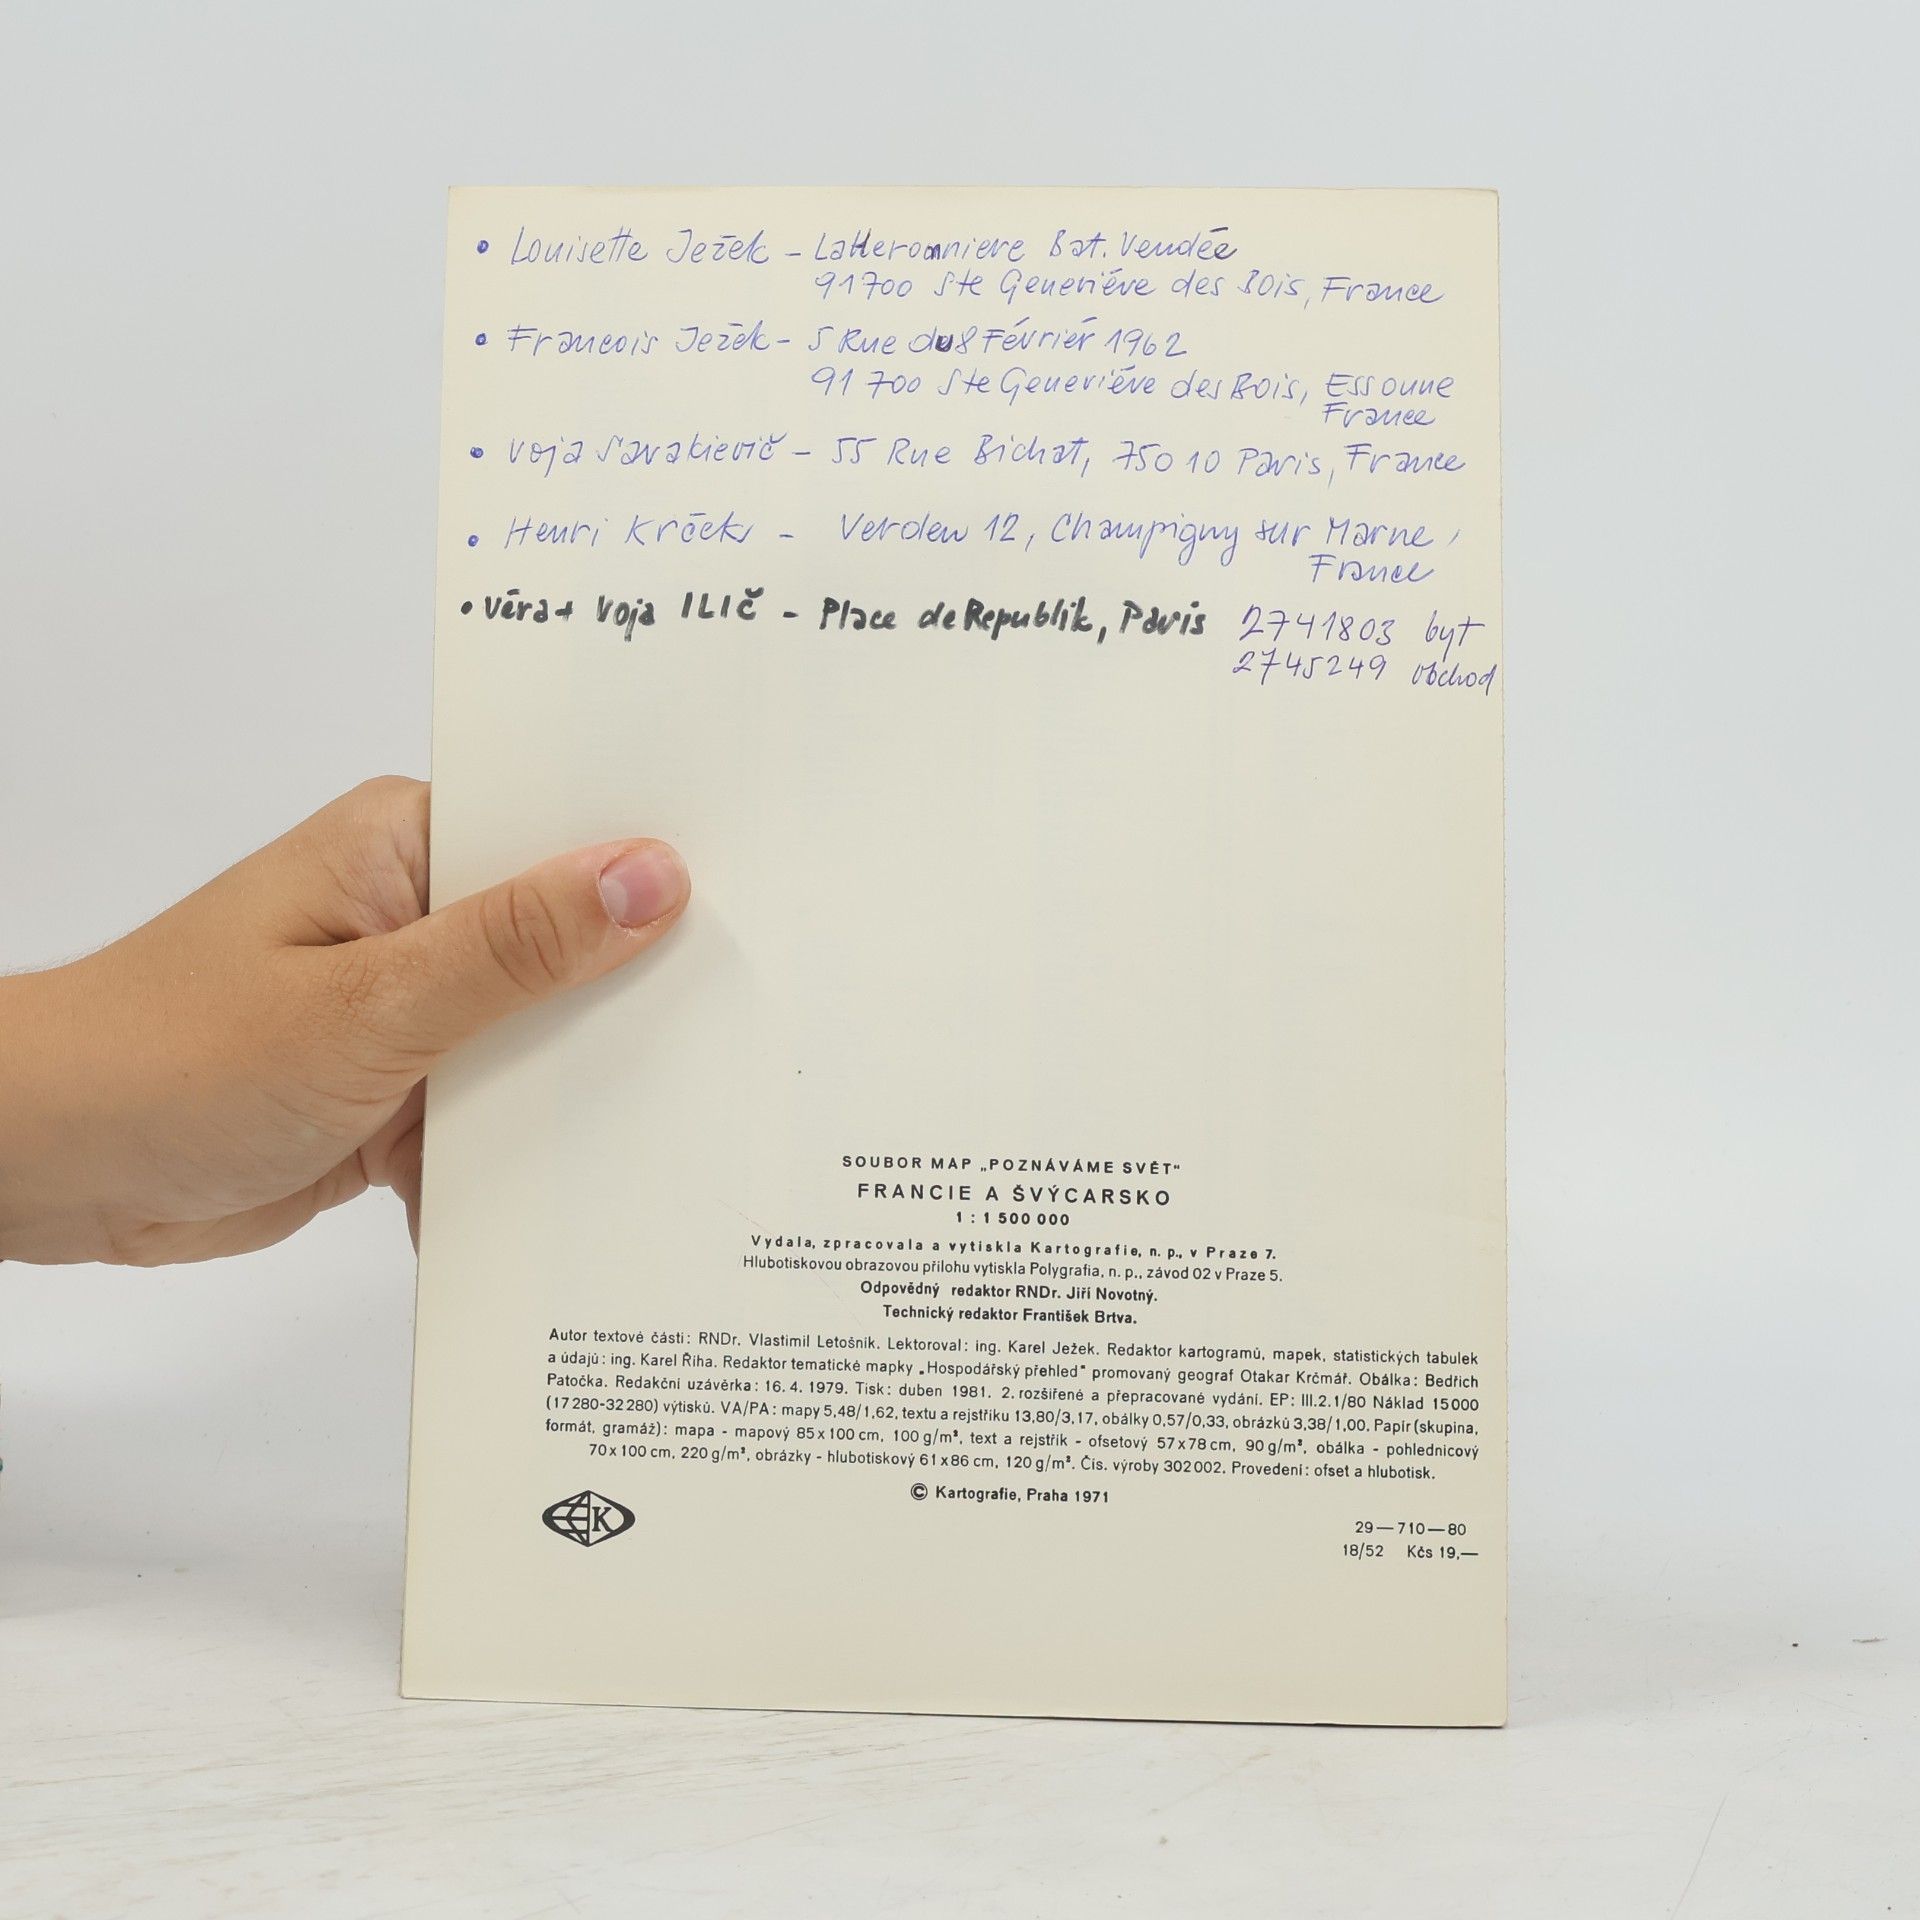 • Louisette Ježek – LaHeronniere Bat. Vendée
91700 Ste Geneviéve des Bois, France
• Francois Ježek – 5 Rue du 8 Février 1962
91 700 Ste Geneviéve des Bois, Essonne
France
• Voja Savakievič – 55 Rue Bichat, 750 10 Paris, France
• Henri Krček – Verden 12, Champigny sur Marne,
France
• Věra + Voja ILIČ – Place de Republik, Paris 2741803 byt
2745249 obchod
SOUBOR MAP „POZNÁVÁME SVĚT“
FRANCIE A ŠVÝCARSKO
1 : 1 500 000
Vydala, zpracovala a vytiskla Kartografie, n. p., v Praze 7.
Hlubotiskovou obrazovou přílohu vytiskla Polygrafia, n. p., závod 02 v Praze 5.
Odpovědný redaktor RNDr. Jiří Novotný.
Technický redaktor František Brtva.
Autor textové části: RNDr. Vlastimil Letošník. Lektoroval: ing. Karel Ježek. Redaktor kartogramů, mapek, statistických tabulek
a údajů: ing. Karel Říha. Redaktor tematické mapky „Hospodářský přehled“ promovaný geograf Otakar Krčmář. Obálka: Bedřich
Patočka. Redakční uzávěrka: 16. 4. 1979. Tisk: duben 1981. 2. rozšířené a přepracované vydání. EP: III.2.1/80 Náklad 15000
(17 280-32 280) výtisků. VA/PA: mapy 5,48/1,62, textu a rejstříku 13,80/3,17, obálky 0,57/0,33, obrázků 3,38/1,00. Papír (skupina,
formát, gramáž): mapa - mapový 85 x 100 cm, 100 g/m², text a rejstřík - ofsetový 57 x 78 cm, 90 g/m², obálka - pohlednicový
70 x 100 cm, 220 g/m², obrázky - hlubotiskový 61 x 86 cm, 120 g/m². Čís. výroby 302 002. Provedení: ofset a hlubotisk.
© Kartografie, Praha 1971
K
29—710—80
18/52 Kčs 19,—